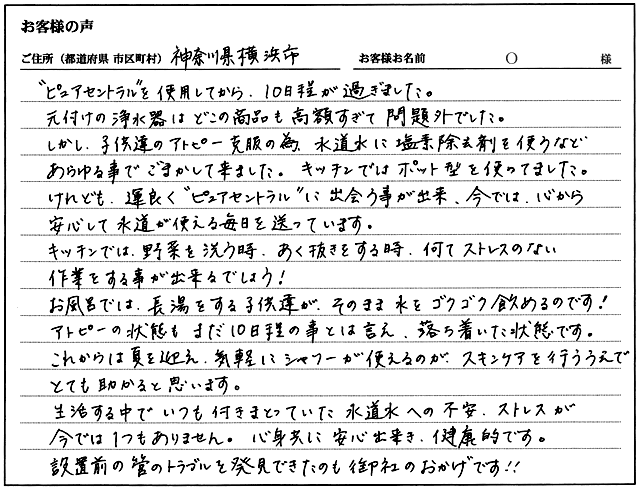 お客様の声
ご住所（都道府県 市区町村） 神奈川県横浜市 お客様お名前 ○ 様
"ピュアセントラル"を使用してから、10日程が過ぎました。
元付けの浄水器はどこの商品も高額すぎて問題外でした。
しかし、子供達のアトピー克服の為、水道水に塩素除去剤を使うなど
あらゆる事でごまかして来ました。キッチンではポット型を使ってました。
けれども、運良く"ピュアセントラル"に出会う事が出来、今では、心から
安心して水道が使える毎日を送っています。
キッチンでは、野菜を洗う時、あく抜きをする時、何てストレスのない
作業をする事が出来るでしょう！
お風呂では、長湯をする子供達が、そのまま水をゴクゴク飲めるのです！
アトピーの状態もまだ10日程の事とは言え、落ち着いた状態です。
これからは夏を迎え、気軽にシャワーが使えるのが、スキンケアを行ううえで
とても助かると思います。
生活する中でいつも付きまとっていた水道水への不安、ストレスが
今では1つもありません。心身共に安心出来き、健康的です。
設置前の管のトラブルを発見できたのも御社のおかげです!!